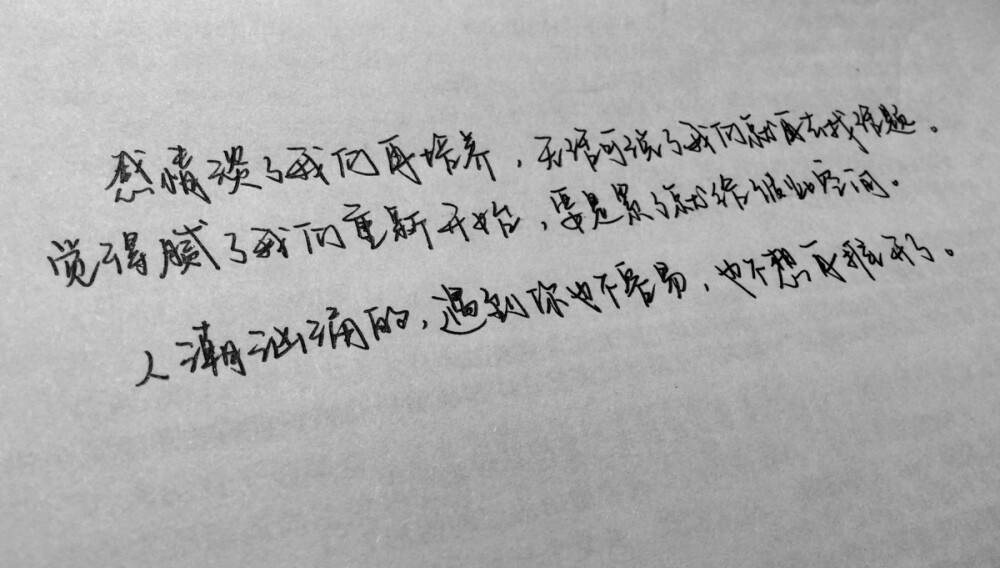 感情淡了我们再培养，无话可说了我们就再去找话题。
觉得腻了我们重新开始，要是累了就给彼此空间。
人潮汹涌的，遇到你也不容易，也不想再离开了。